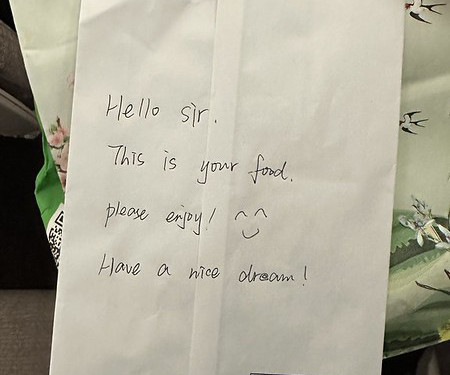 Hello sir.
This is your food.
please enjoy! ^^
Have a nice dream!